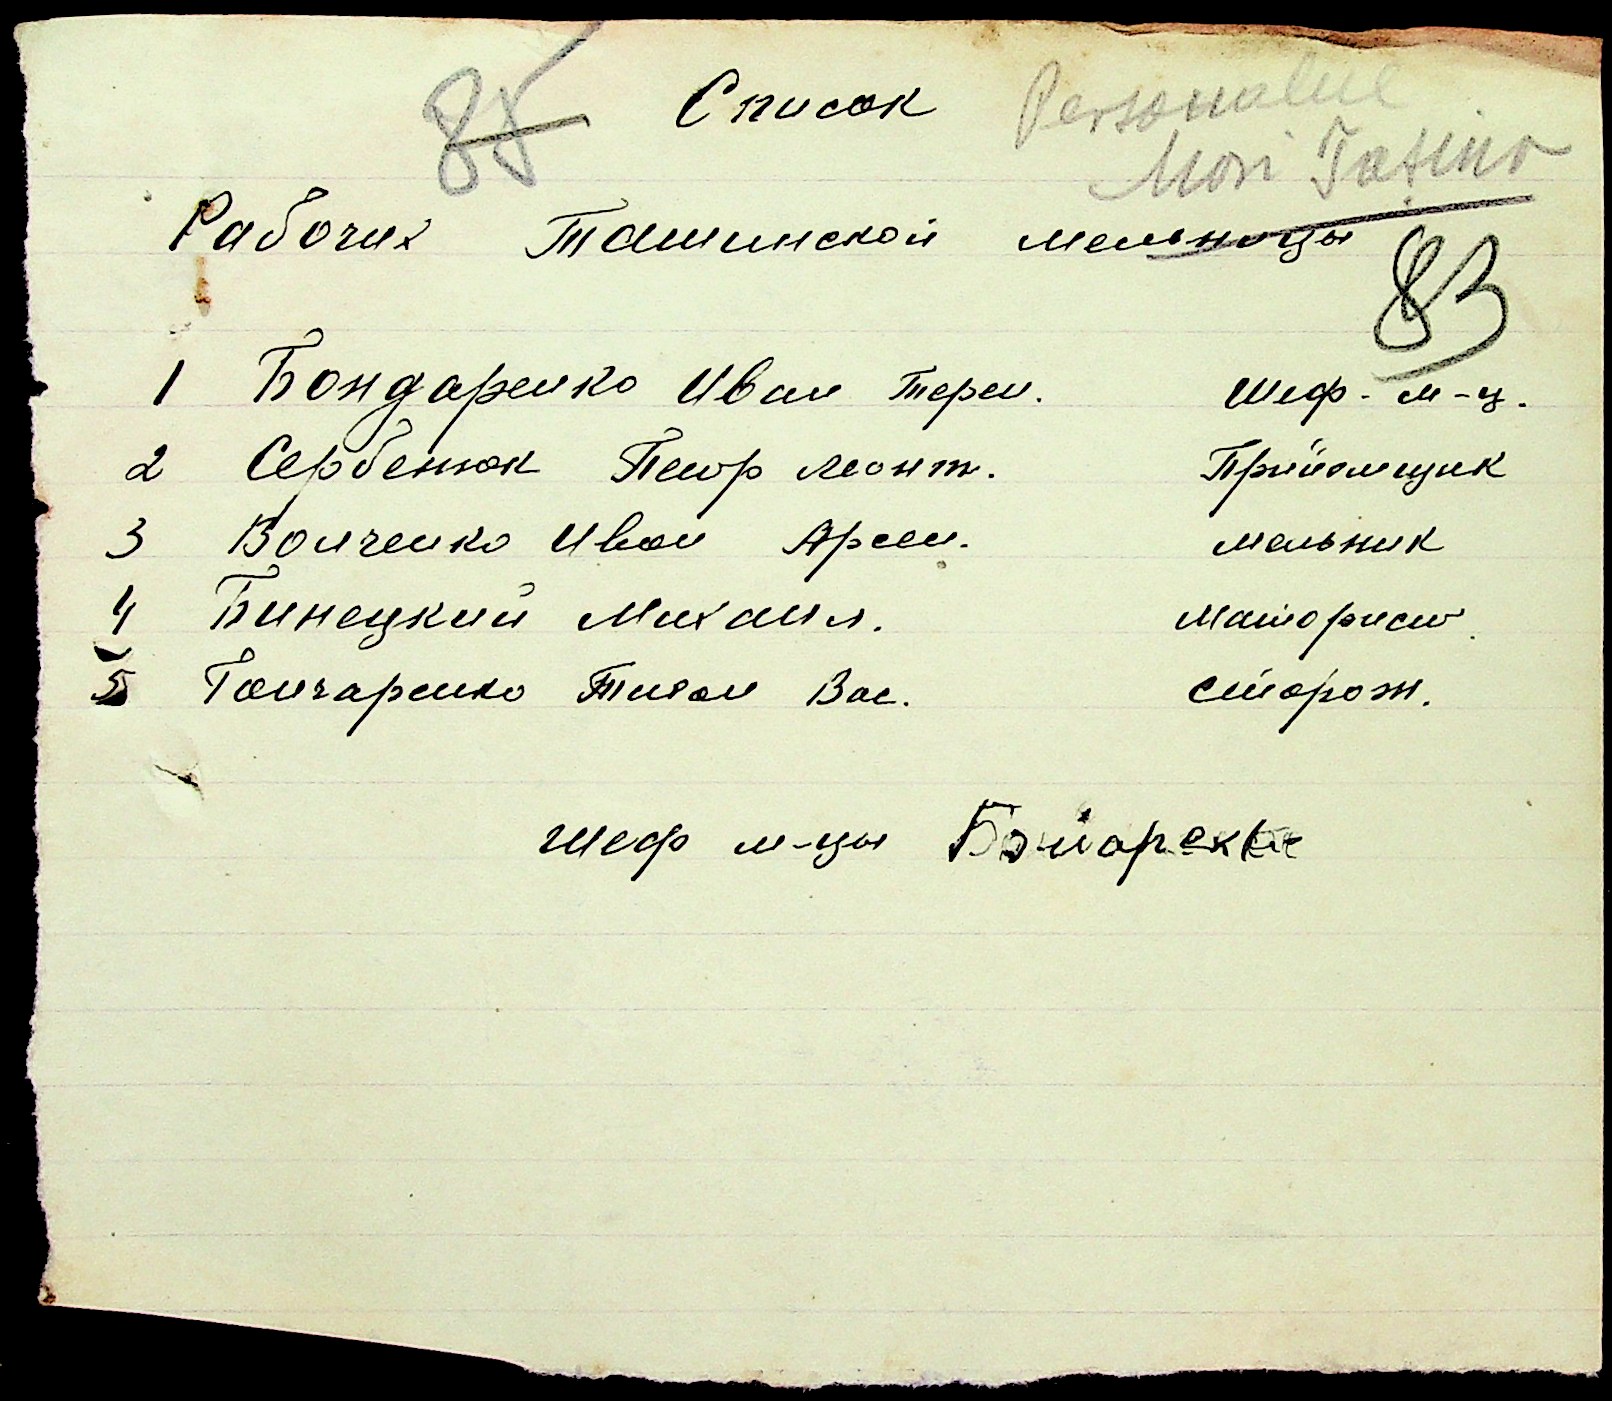 85 Список Personalul
Morii Tatino
Рабочих Ташинской мельницы
83
1 Бондаренко Иван Терен. Шеф-м-ц.
2 Сербенюк Петр Леонт. Приёмщик
3 Волченко Иван Арсен. мельник
4 Бинецкий Михаил. Моторист
5 Гончаренко Тихон Вас. сторож.
Шеф м-цы Бондаренко